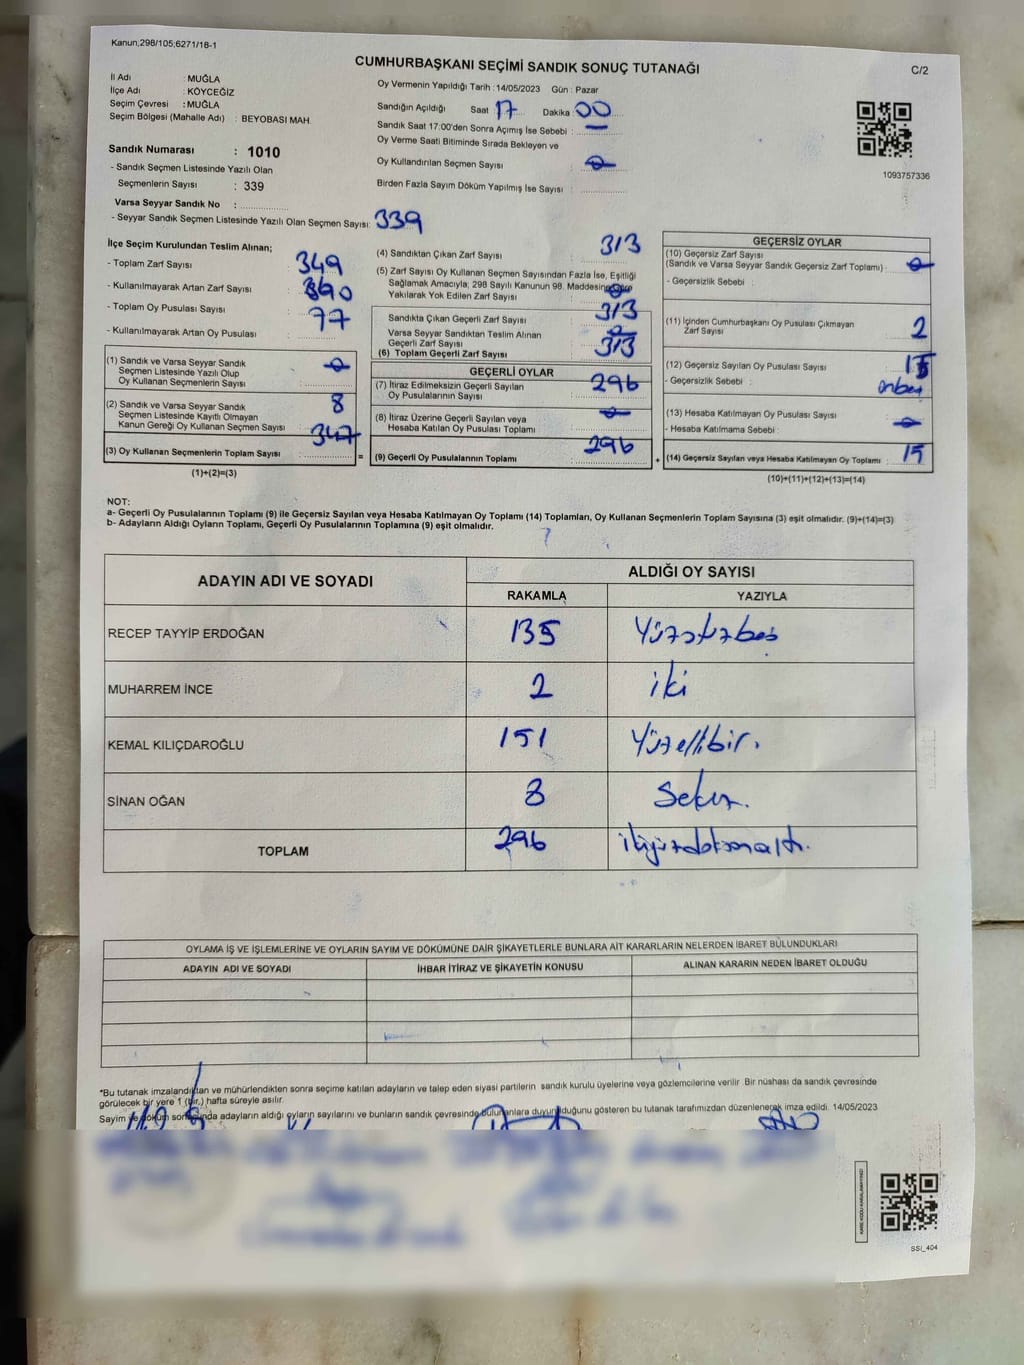 Kanun.298/105;6271/18-1
CUMHURBAŞKANI SEÇİMİ SANDIK SONUÇ TUTANAĞI
C/2
İl Adı : MUĞLA
İlçe Adı : KÖYCEĞİZ
Seçim Çevresi : MUĞLA
Seçim Bölgesi (Mahalle Adı) : BEYOBASI MAH.
Sandık Numarası : 1010
- Sandık Seçmen Listesinde Yazılı Olan
Seçmenlerin Sayısı : 339
Varsa Seyyar Sandık No :
- Seyyar Sandık Seçmen Listesinde Yazılı Olan Seçmen Sayısı: 339
Oy Vermenin Yapıldığı Tarih : 14/05/2023 Gün : Pazar
Sandığın Açıldığı Saat 17 Dakika 00
Sandık Saat 17:00'den Sonra Açımış İse Sebebi : —
Oy Verme Saati Bitiminde Sırada Bekleyen ve
Oy Kullandırılan Seçmen Sayısı : 0
Birden Fazla Sayım Döküm Yapılmış İse Sayısı :
1093757336
İlçe Seçim Kurulundan Teslim Alınan;
- Toplam Zarf Sayısı : 349
- Kullanılmayarak Artan Zarf Sayısı :
- Toplam Oy Pusulası Sayısı : 77
- Kullanılmayarak Artan Oy Pusulası :
(1) Sandık ve Varsa Seyyar Sandık
Seçmen Listesinde Yazılı Olup
Oy Kullanan Seçmenlerin Sayısı : 0
(2) Sandık ve Varsa Seyyar Sandık
Seçmen Listesinde Kayıtlı Olmayan
Kanun Gereği Oy Kullanan Seçmen Sayısı : 8
347
(3) Oy Kullanan Seçmenlerin Toplam Sayısı :
(1)+(2)=(3)
=
(4) Sandıktan Çıkan Zarf Sayısı : 313
(5) Zarf Sayısı Oy Kullanan Seçmen Sayısından Fazla İse, Eşitliği
Sağlamak Amacıyla; 298 Sayılı Kanunun 98. Maddesine Göre
Yakılarak Yok Edilen Zarf Sayısı : 0
Sandıkta Çıkan Geçerli Zarf Sayısı : 313
Varsa Seyyar Sandıktan Teslim Alınan
Geçerli Zarf Sayısı : 0
(6) Toplam Geçerli Zarf Sayısı : 313
GEÇERLİ OYLAR
(7) İtiraz Edilmeksizin Geçerli Sayılan
Oy Pusulalarının Sayısı : 296
(8) İtiraz Üzerine Geçerli Sayılan veya
Hesaba Katılan Oy Pusulası Toplamı : 0
(9) Geçerli Oy Pusulalarının Toplamı : 296
+
GEÇERSİZ OYLAR
(10) Geçersiz Zarf Sayısı
(Sandık ve Varsa Seyyar Sandık Geçersiz Zarf Toplamı) : 0
- Geçersizlik Sebebi :
(11) İçinden Cumhurbaşkanı Oy Pusulası Çıkmayan
Zarf Sayısı : 2
(12) Geçersiz Sayılan Oy Pusulası Sayısı : 15
- Geçersizlik Sebebi : onbeş
(13) Hesaba Katılmayan Oy Pusulası Sayısı : 0
- Hesaba Katılmama Sebebi :
(14) Geçersiz Sayılan veya Hesaba Katılmayan Oy Toplamı : 15
(10)+(11)+(12)+(13)=(14)
NOT:
a- Geçerli Oy Pusulalarının Toplamı (9) ile Geçersiz Sayılan veya Hesaba Katılmayan Oy Toplamı (14) Toplamları, Oy Kullanan Seçmenlerin Toplam Sayısına (3) eşit olmalıdır. (9)+(14)=(3)
b- Adayların Aldığı Oyların Toplamı, Geçerli Oy Pusulalarının Toplamına (9) eşit olmalıdır.
ADAYIN ADI VE SOYADI
ALDIĞI OY SAYISI
RAKAMLA YAZIYLA
RECEP TAYYİP ERDOĞAN 135 Yüzotuzbeş
MUHARREM İNCE 2 iki
KEMAL KILIÇDAROĞLU 151 Yüzellibir.
SİNAN OĞAN 8 Sekiz.
TOPLAM 296 ikiyüzdoksanaltı.
OYLAMA İŞ VE İŞLEMLERİNE VE OYLARIN SAYIM VE DÖKÜMÜNE DAİR ŞİKAYETLERLE BUNLARA AİT KARARLARIN NELERDEN İBARET BULUNDUKLARI
ADAYIN ADI VE SOYADI İHBAR İTİRAZ VE ŞİKAYETİN KONUSU ALINAN KARARIN NEDEN İBARET OLDUĞU
*Bu tutanak imzalandıktan ve mühürlendikten sonra seçime katılan adayların ve talep eden siyasi partilerin sandık kurulu üyelerine veya gözlemcilerine verilir. Bir nüshası da sandık çevresinde
görülecek bir yere 1 (bir.) hafta süreyle asılır.
Sayım ve döküm sonrasında adayların aldığı oyların sayılarını ve bunların sandık çevresinde bulunanlara duyurulduğunu gösteren bu tutanak tarafımızdan düzenlenerek imza edildi. 14/05/2023
KARE KODU KARALAMAYINIZ!
SSI_404